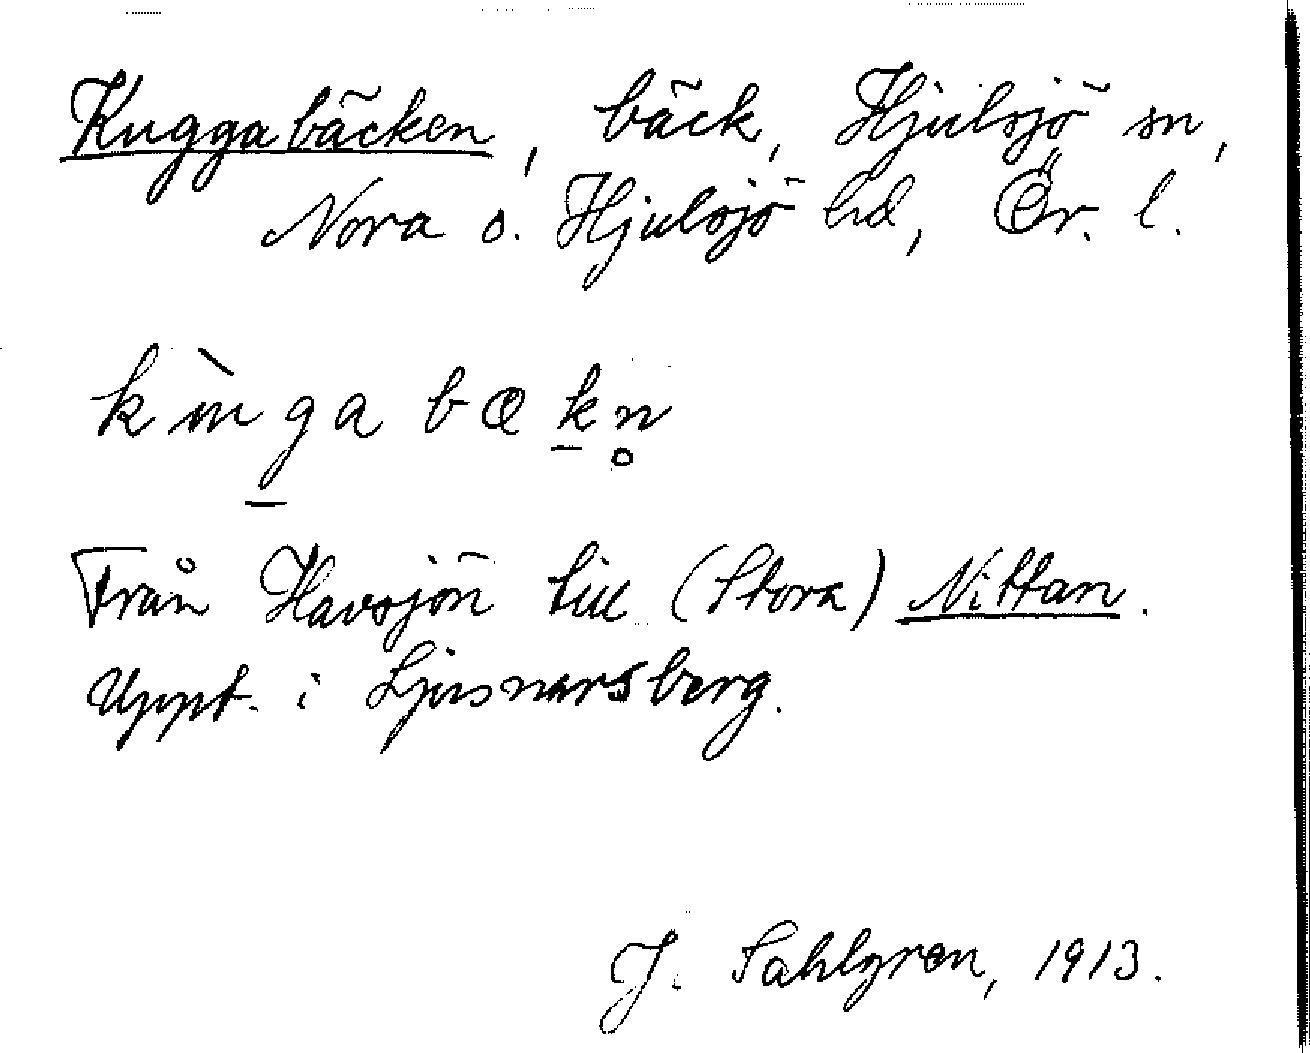 Kuggabäcken, bäck, Hjulsjö sn,
Nora o. Hjulsjö hd, Ör. l.
kùga bækn̥
Från Havsjön till (Stora) Nittan.
Uppt. i Ljusnarsberg.
J. Sahlgren, 1913.